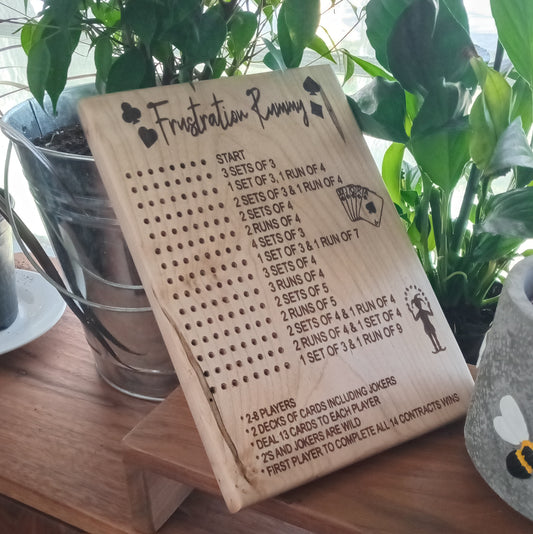 Frustration Rummy
START
3 SETS OF 3
1 SET OF 3, 1 RUN OF 4
2 SETS OF 3 & 1 RUN OF 4
2 SETS OF 4
2 RUNS OF 4
4 SETS OF 3
1 SET OF 3 & 1 RUN OF 7
3 SETS OF 4
3 RUNS OF 4
2 SETS OF 5
2 RUNS OF 5
2 SETS OF 4 & 1 RUN OF 4
2 RUNS OF 4 & 1 SET OF 4
1 SET OF 3 & 1 RUN OF 9
* 2-8 PLAYERS
* 2 DECKS OF CARDS INCLUDING JOKERS
* DEAL 13 CARDS TO EACH PLAYER
* 2'S AND JOKERS ARE WILD
* FIRST PLAYER TO COMPLETE ALL 14 CONTRACTS WINS